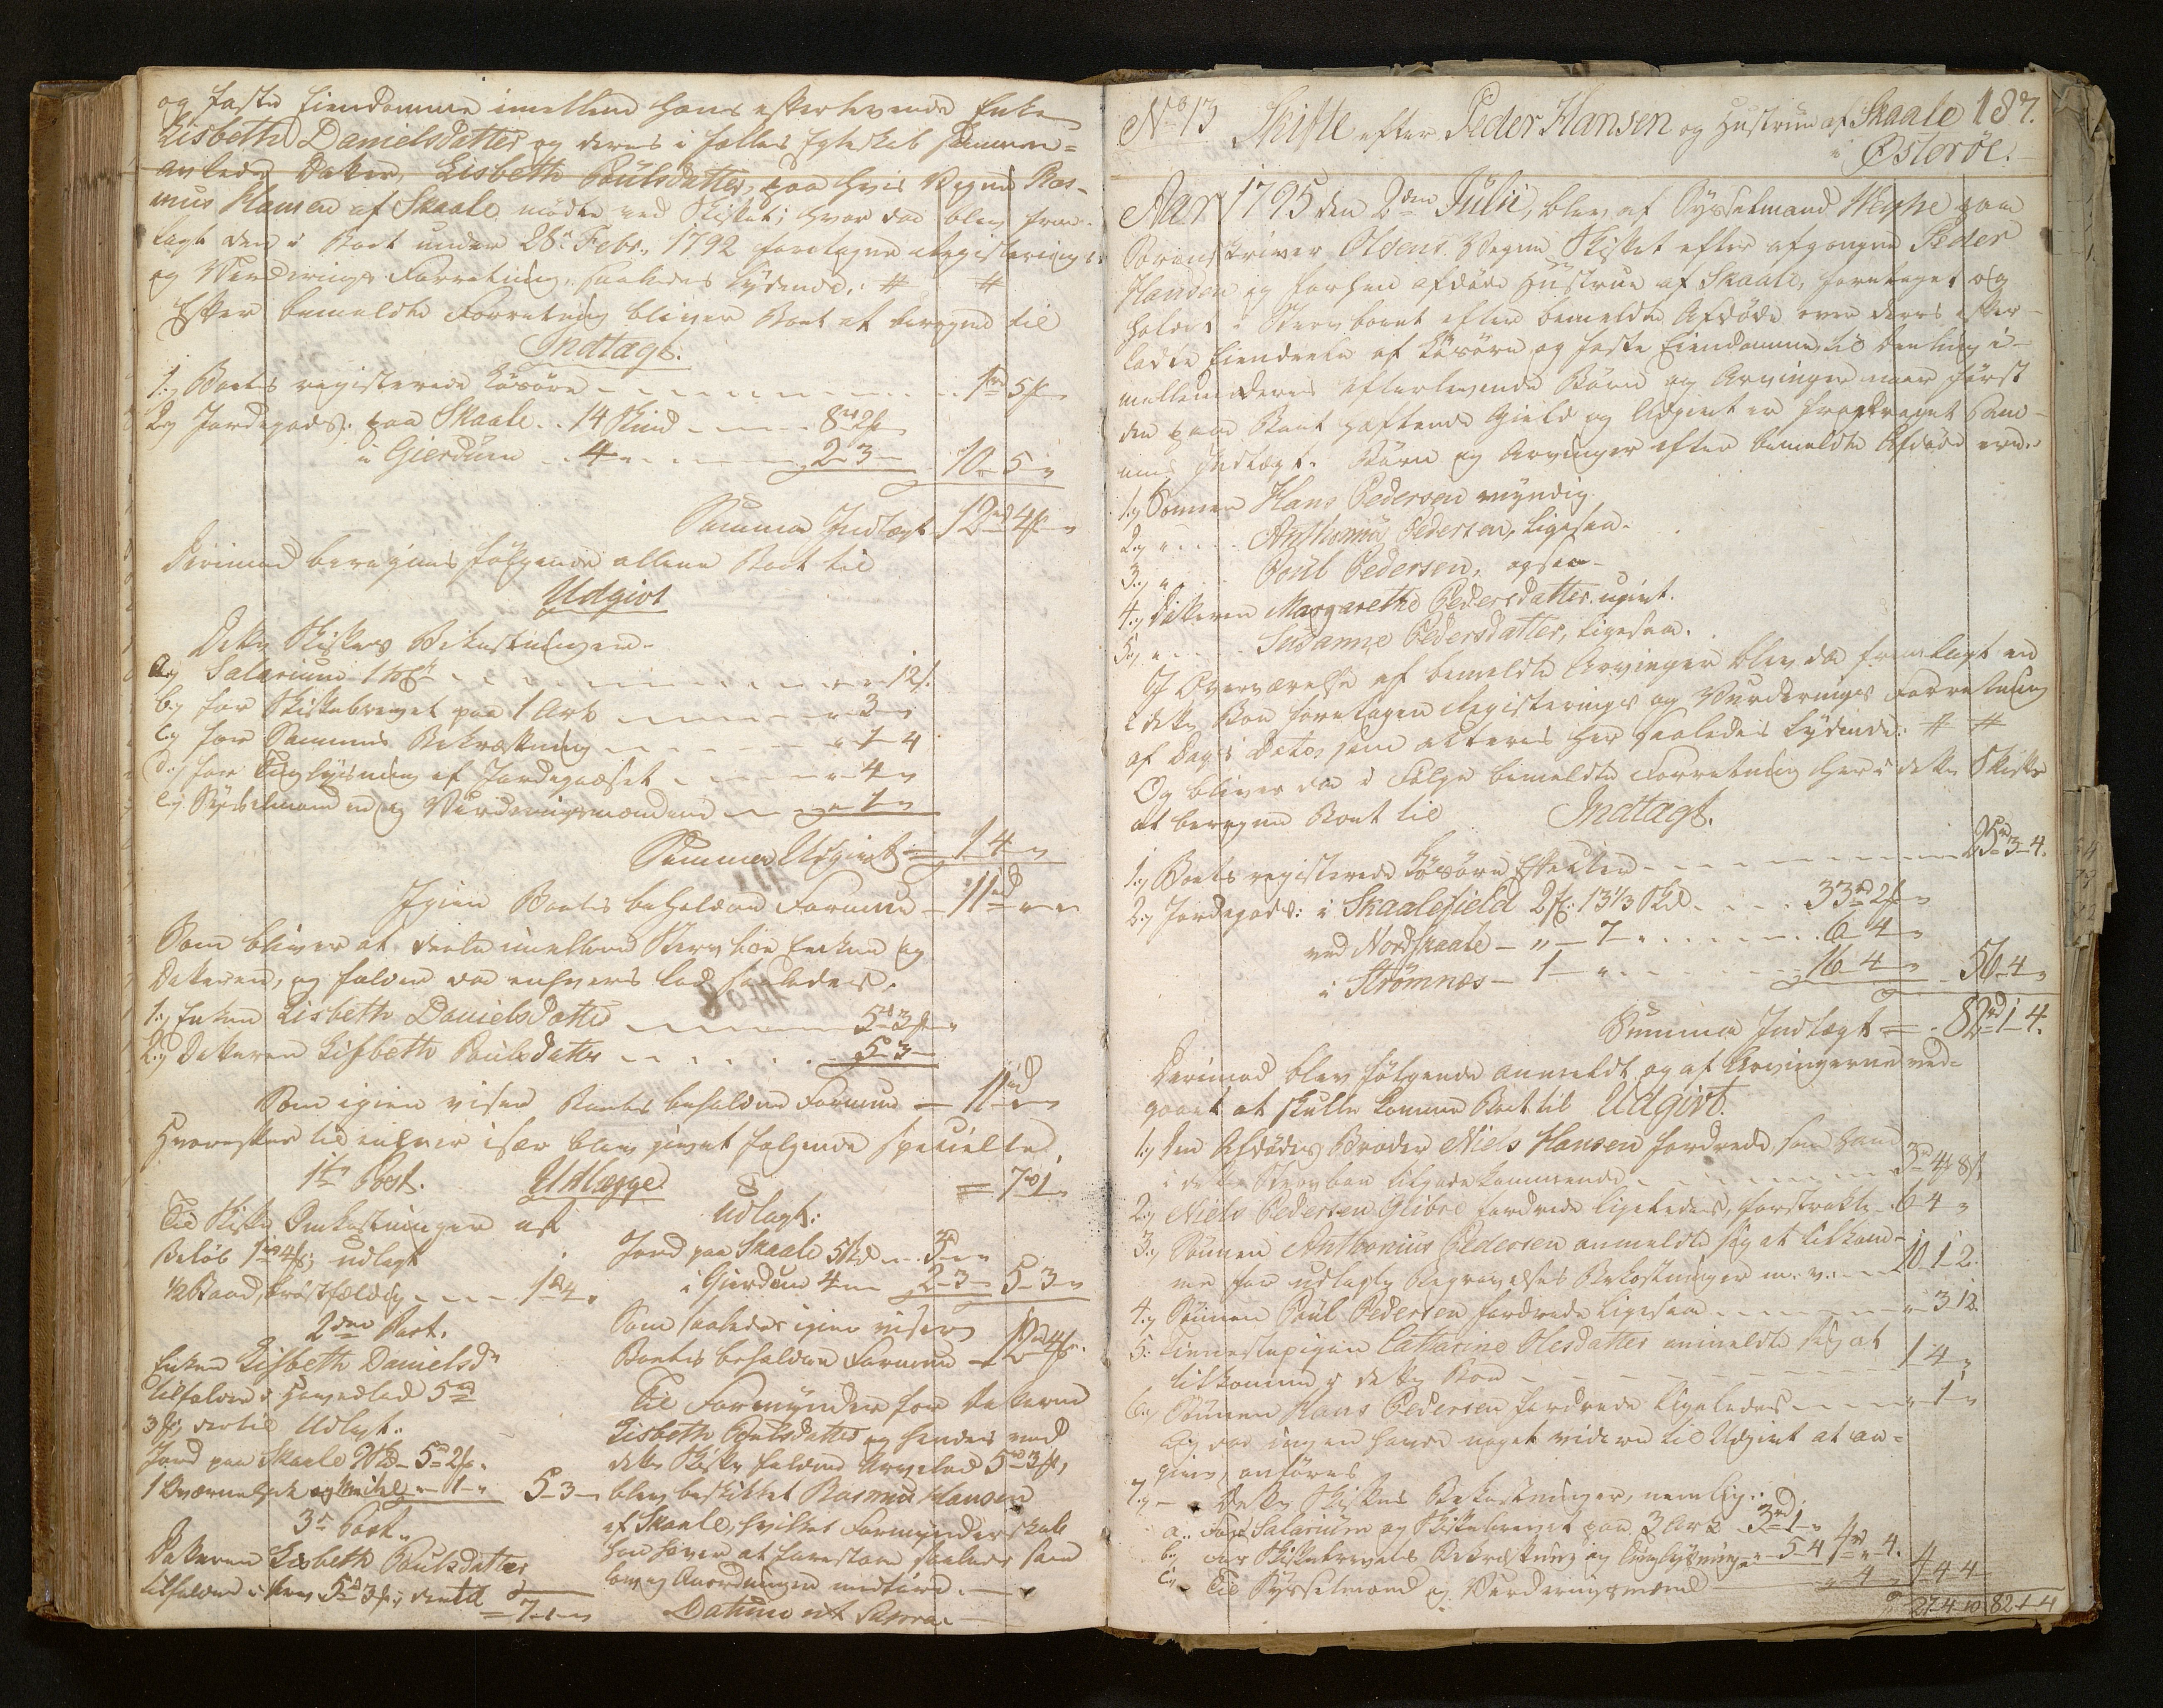 og faste Eiendomme imellem hans efterlevende Enke
Lisbeth Danielsdatter og deres i fælles Egteskab sammen=
avlede Datter, Lisbeth Poulsdatter, paa hvis Vegne Ras-
mus Hansen af Skaale mødte ved Skiftet; hvor da blev frem-
lagt den i Boet under 28de Febr. 1792 foretagne Registerings
og Vurderings Forretning, saaledes lydende: # #
Efter bemeldte Forretning bliver Boet at beregne til
Indtægt.
1.) Boets registerede Løsøre 1rd 5f
2.) Jordegods: paa Skaale 14 Skind 8rd 2f
i Gierdum 4 2-3 10-5
Summa Indtægt 12rd 4f
Derimod beregnes følgende allene Boet til
Udgivt
Dette Skiftes Bekostninger.
a.) Salarium 12s.
b.) for Skiftebrevet paa 1 Ark 3
c.) for Sammes Bekræftning 1-4
d.) for Tinglysning af Jordegodset 4
e.) Sysselmanden og Vurderingsmændene 1
Summa Udgivt = 1-4
Igien Boets beholdne Formue 11rd
Som bliver at deele imellem Enken og
Datteren, og falder da enhvers lod saaledes.
1.) Enken Lisbeth Danielsdatter 5rd 3f
2.) Datteren Lisbeth Poulsdatter 5-3
Som igien viser Boets beholdne Formue 11rd
Hvorefter til enhver især blev givet følgende specielle
1ste Post. Udlægge = 7rd 1
Til Skifte Omkostninger at
Beløb 1rd 4f; udlagt
½ Baad, brøstfældig 1rd 4
2den Post.
Enken Lisbeth Danielsd.
tilfalden i Hovedlod 5rd
3f, dertil Udlagt.
Jord paa Skaale 5rd 2f.
1 1 5-3
3de Post.
Datteren Lisbeth Poulsdatter
tilfalden i Arv 5rd 3f; dertil
= 7-1
Udlagt:
Jord paa Skaale 5 3rd
i Gierdum 4 2-3 5-3
Som saaledes igien viser
Boets beholdne Formue 12rd 4f
Til Formynder for Datteren
Lisbeth Poulsdatter og hendes ved
dette Skifte faldne Arvelod 5rd 3f,
blev beskikket Rasmus Hansen
af Skaale, hvilket Formynderskab
han haver at forestaae saaledes som
Lov og Anordninger medfører.
Datum ut Supra.
No 13 Skifte efter Peder Hansen og Hustrue af Skaale 187.
i Østerøe.
Aar 1795 den 2den Julii, blev af Sysselmand Weyhe paa
Sorenskriver Olsens Vegne Skiftet efter afgangne Peder
Hansen og forhen afdøde Hustrue af Skaale, foretaget og
holdet i Stervboet efter bemeldte Afdøde over deres efter-
ladte Eiendeele af Løsøre og faste Eiendomme, til Deeling i-
mellem deres efterlevende Børn og Arvinger naar først
den paa Boet hæftende Gield og Udgivt er fradraget sam-
mes Indtægt. Børn og Arvinger efter bemeldte Afdøde ere.
1.) Sønnen Hans Pedersen myndig
2.) " Anthonius Pedersen, ligesaa.
3.) " Poul Pedersen, ogsaa
4.) Datteren Margarethe Pedersdatter ugivt.
5.) " Susanne Pedersdatter, ligesaa.
I Overværelse af bemeldte Arvinger blev da fremlagt en
i dette Boe foretagen Registerings og Vurderings Forretning
af Dags Dato, som acteres her saaledes lydende: # #
Og bliver da i Følge bemeldte Forretning her i dette Skifte
at beregne Boet til Indtægt.
1.) Boets registerede Løsøre Effecter 25rd 3-4.
2.) Jordegods: i Skaalefield 2 13⅓ 33rd 2f
ved Nordskaale " 7 6-4
i Strømnes 1 " 16-4 56-4
Summa Indtægt = 82rd 1-4.
Derimod blev følgende anmeldt og af Arvingerne ved-
gaaet at skulle komme Boet til Udgivt.
1.) Den Afdødes Broder Niels Hansen fordrede, som ham
i dette Stervboe tilgodekommende 3rd 4f 8s
2.) Niels Pedersen Glibre fordrede ligeledes, forstrakte 6-4
3.) Sønnen Anthonius Pedersen anmeldte sig at tilkom-
me for udlagte Begravelses Bekostninger m. v. 10-1-2.
4.) Sønnen Poul Pedersen fordrede ligesaa " 3 12.
5: Tienestepigen Catharine Olesdatter anmeldte sig at
tilkomme i dette Boe 1-4
6.) Sønnen Hans Pedersen fordrede ligeledes " 1
Og da ingen havde noget videre til Udgivt at an-
give, anføres
7.) Dette Skiftes Bekostninger, nemlig:
a. For Salarium og Skiftebrevet paa 3 Ark 3rd 1
b. For Skiftebrevets Bekræftning og Tinglysning " 5-4 4rd " 4.
c. Til Sysselmand og Vurderingsmænd " 4 4-4-4
27-4-10 82-1-4